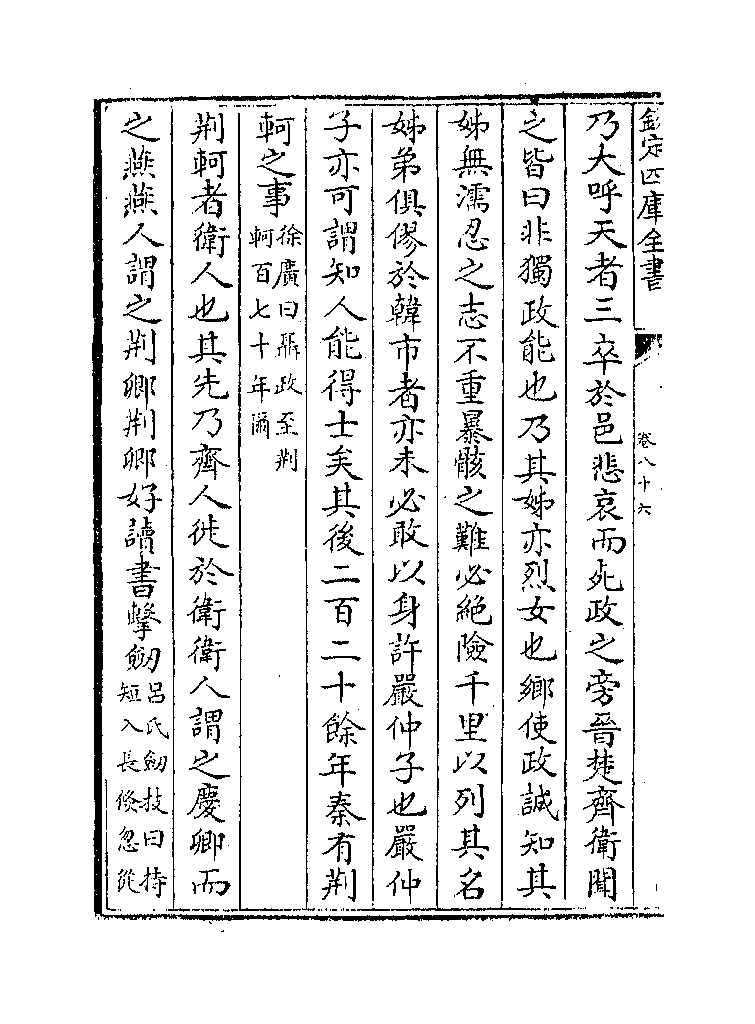 欽定四庫全書
卷八十六
乃大呼天者三卒於邑悲哀而死政之旁晉楚齊衛聞
之皆曰非獨政能也乃其姊亦烈女也鄉使政誠知其
姊無濡忍之志不重暴骸之難必絶險千里以列其名
姊弟俱僇於韓市者亦未必敢以身許嚴仲子也嚴仲
子亦可謂知人能得士矣其後二百二十餘年秦有荆
軻之事徐廣曰聶政至荆軻百七十年爾
荆軻者衛人也其先乃齊人徙於衛衛人謂之慶卿而
之燕燕人謂之荆卿荆卿好讀書擊劒吕氏劒技曰持短入長倐忽從